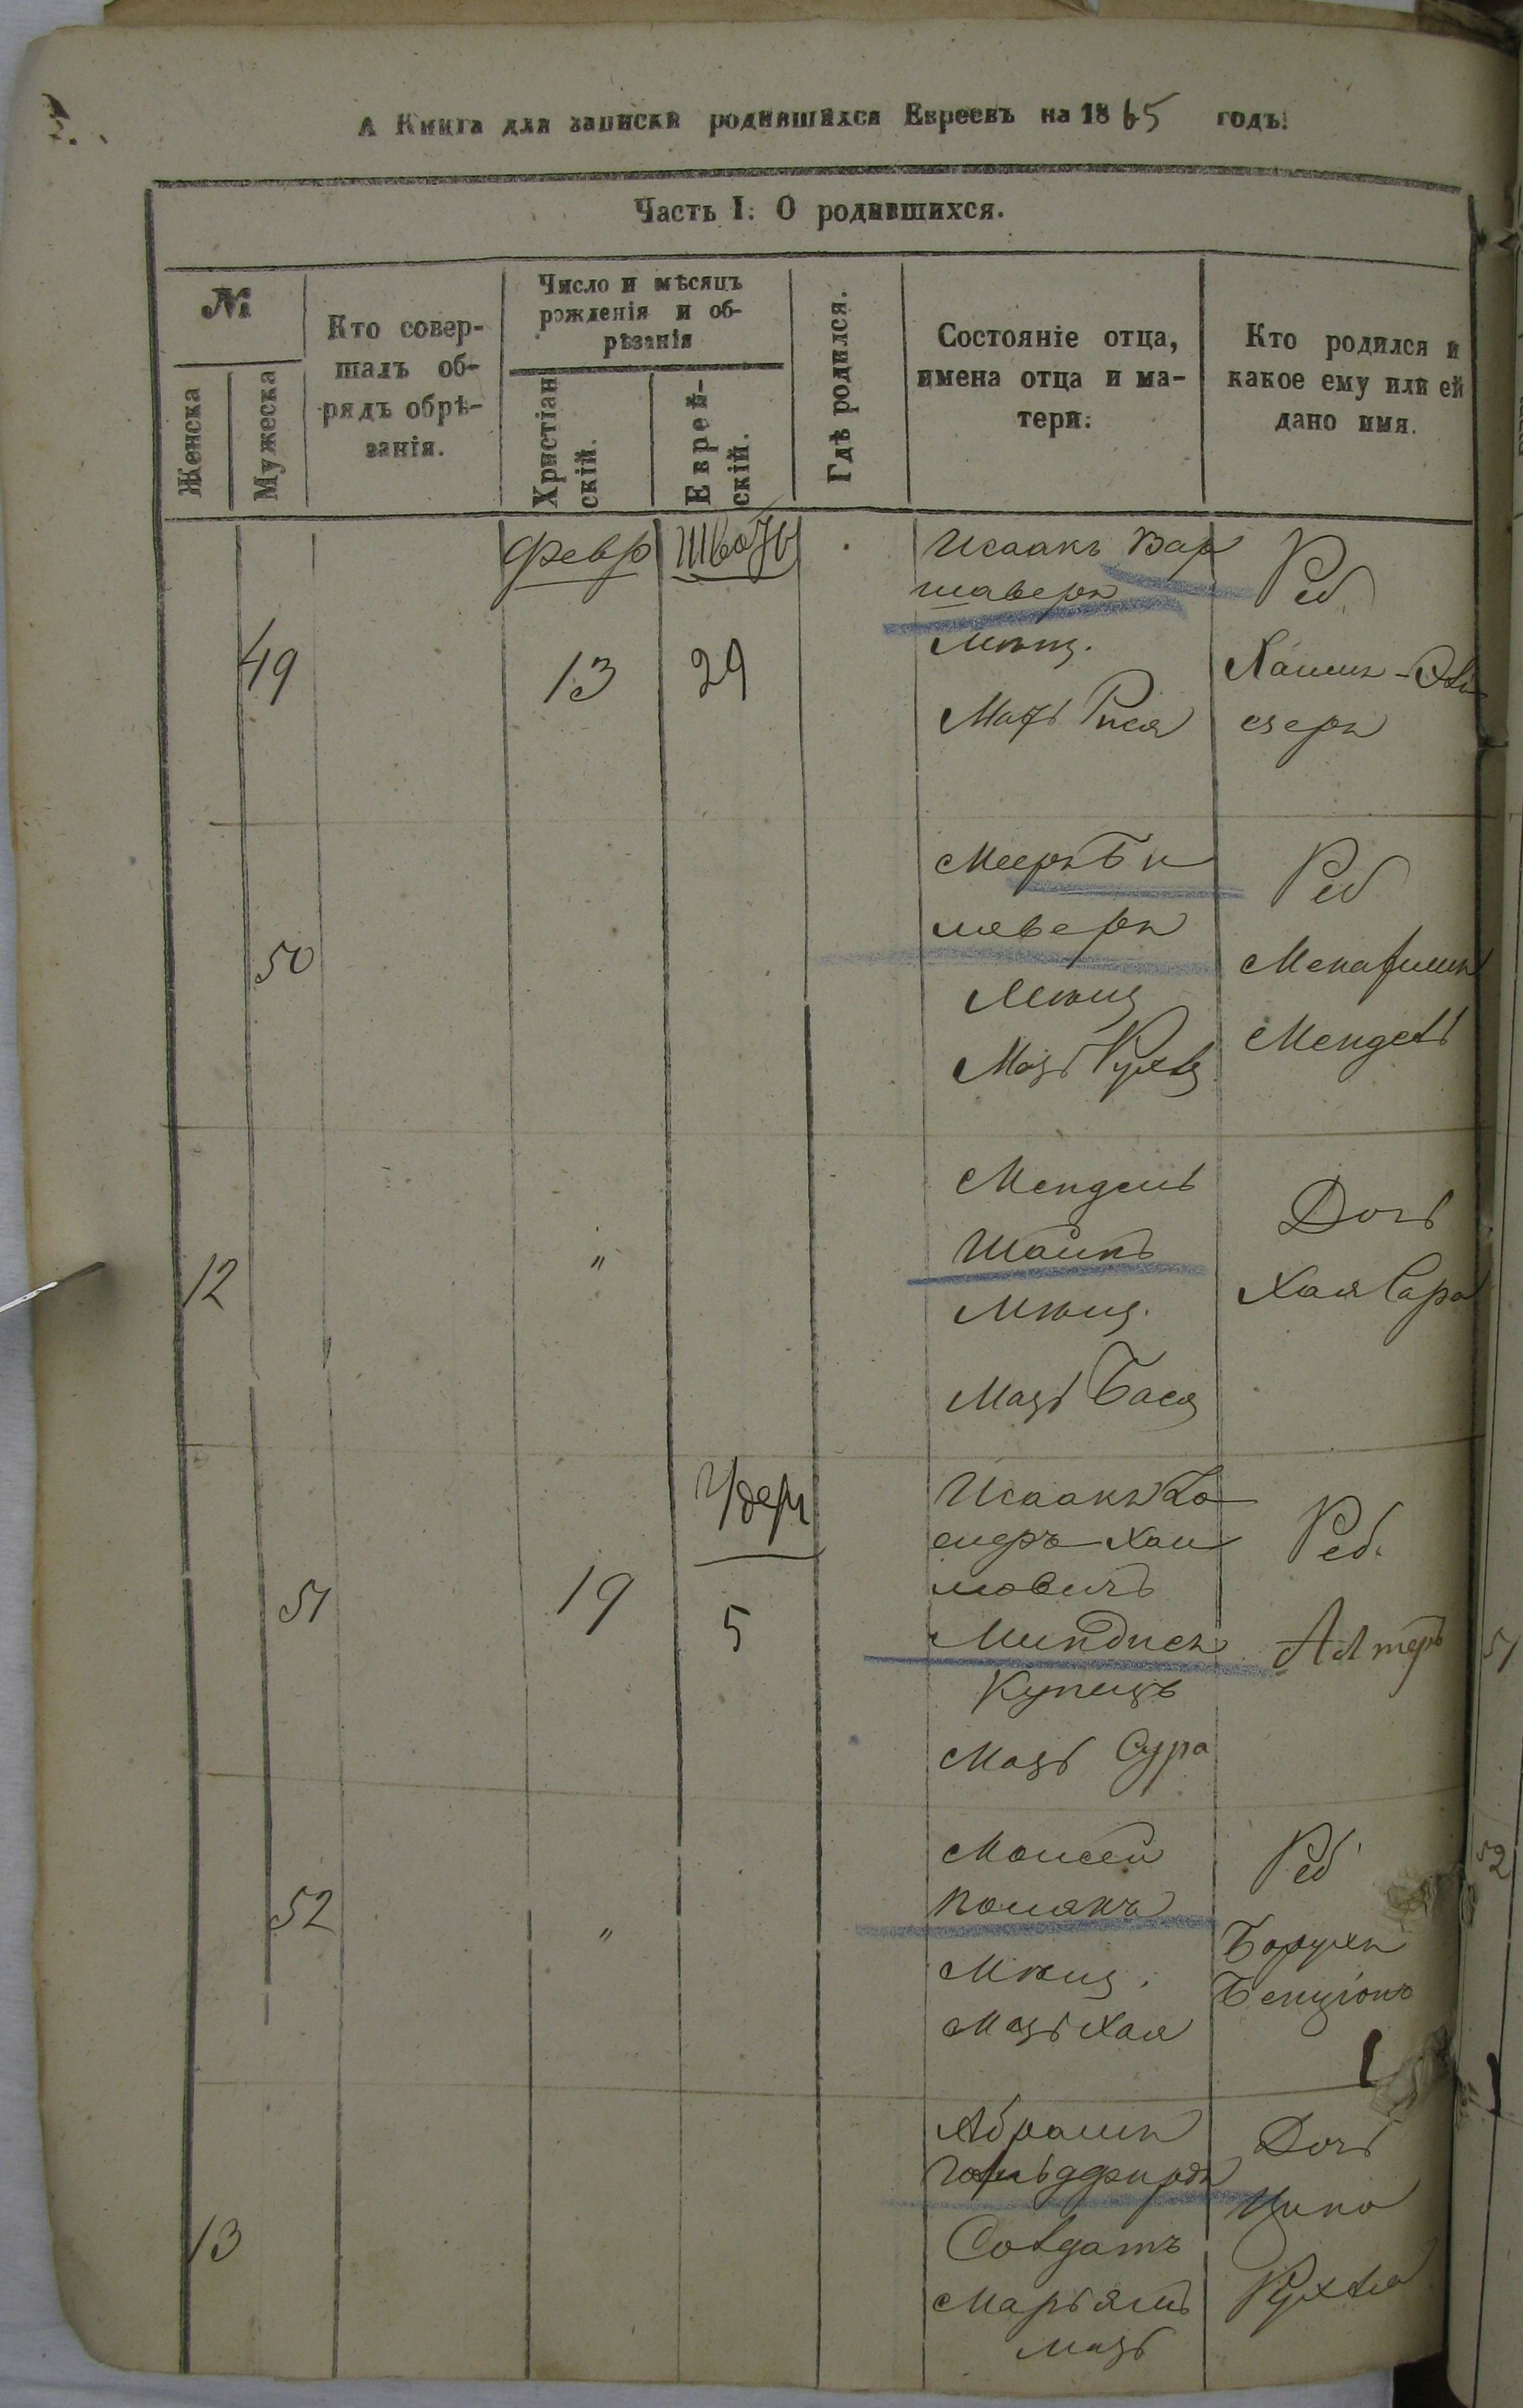 А Книга для записки родившихся Евреевъ на 1865 годъ.
Часть I. О родившихся.
№
Женска
Мужеска
Кто совер-
шалъ об-
рядъ обрѣ-
занія.
Число и мѣсяцъ
рожденія и об-
рѣзанія
Христіан
скій.
Еврей-
скій.
Гдѣ родился.
Состояніе отца,
имена отца и ма-
тери.
Кто родился и
какое ему или ей
дано имя.
49
февр
13
Шватъ
29
Исаакъ Вар
шаверъ
Мѣщ.
Мать Рися
Реб
Хаимъ-Эли
езеръ
50
Мееръ
Мѣщ
Мать Рухля
Реб
Менахимъ
Мендель
12
"
Мендель
Мѣщ.
Мать Бася
Дочь
Хая Сара
51
19
Адеръ
5
Исаакъ
Хаи
мовичъ
Миндисъ
Купецъ
Мать Сура
Реб.
Алтеръ
51
52
"
Моисей
Полякъ
Мѣщ.
Мать Хая
Реб
Борухъ
Бенціонъ
52
13
Абрамъ
Солдатъ
Марьямъ
мать
Дочь
Рухля